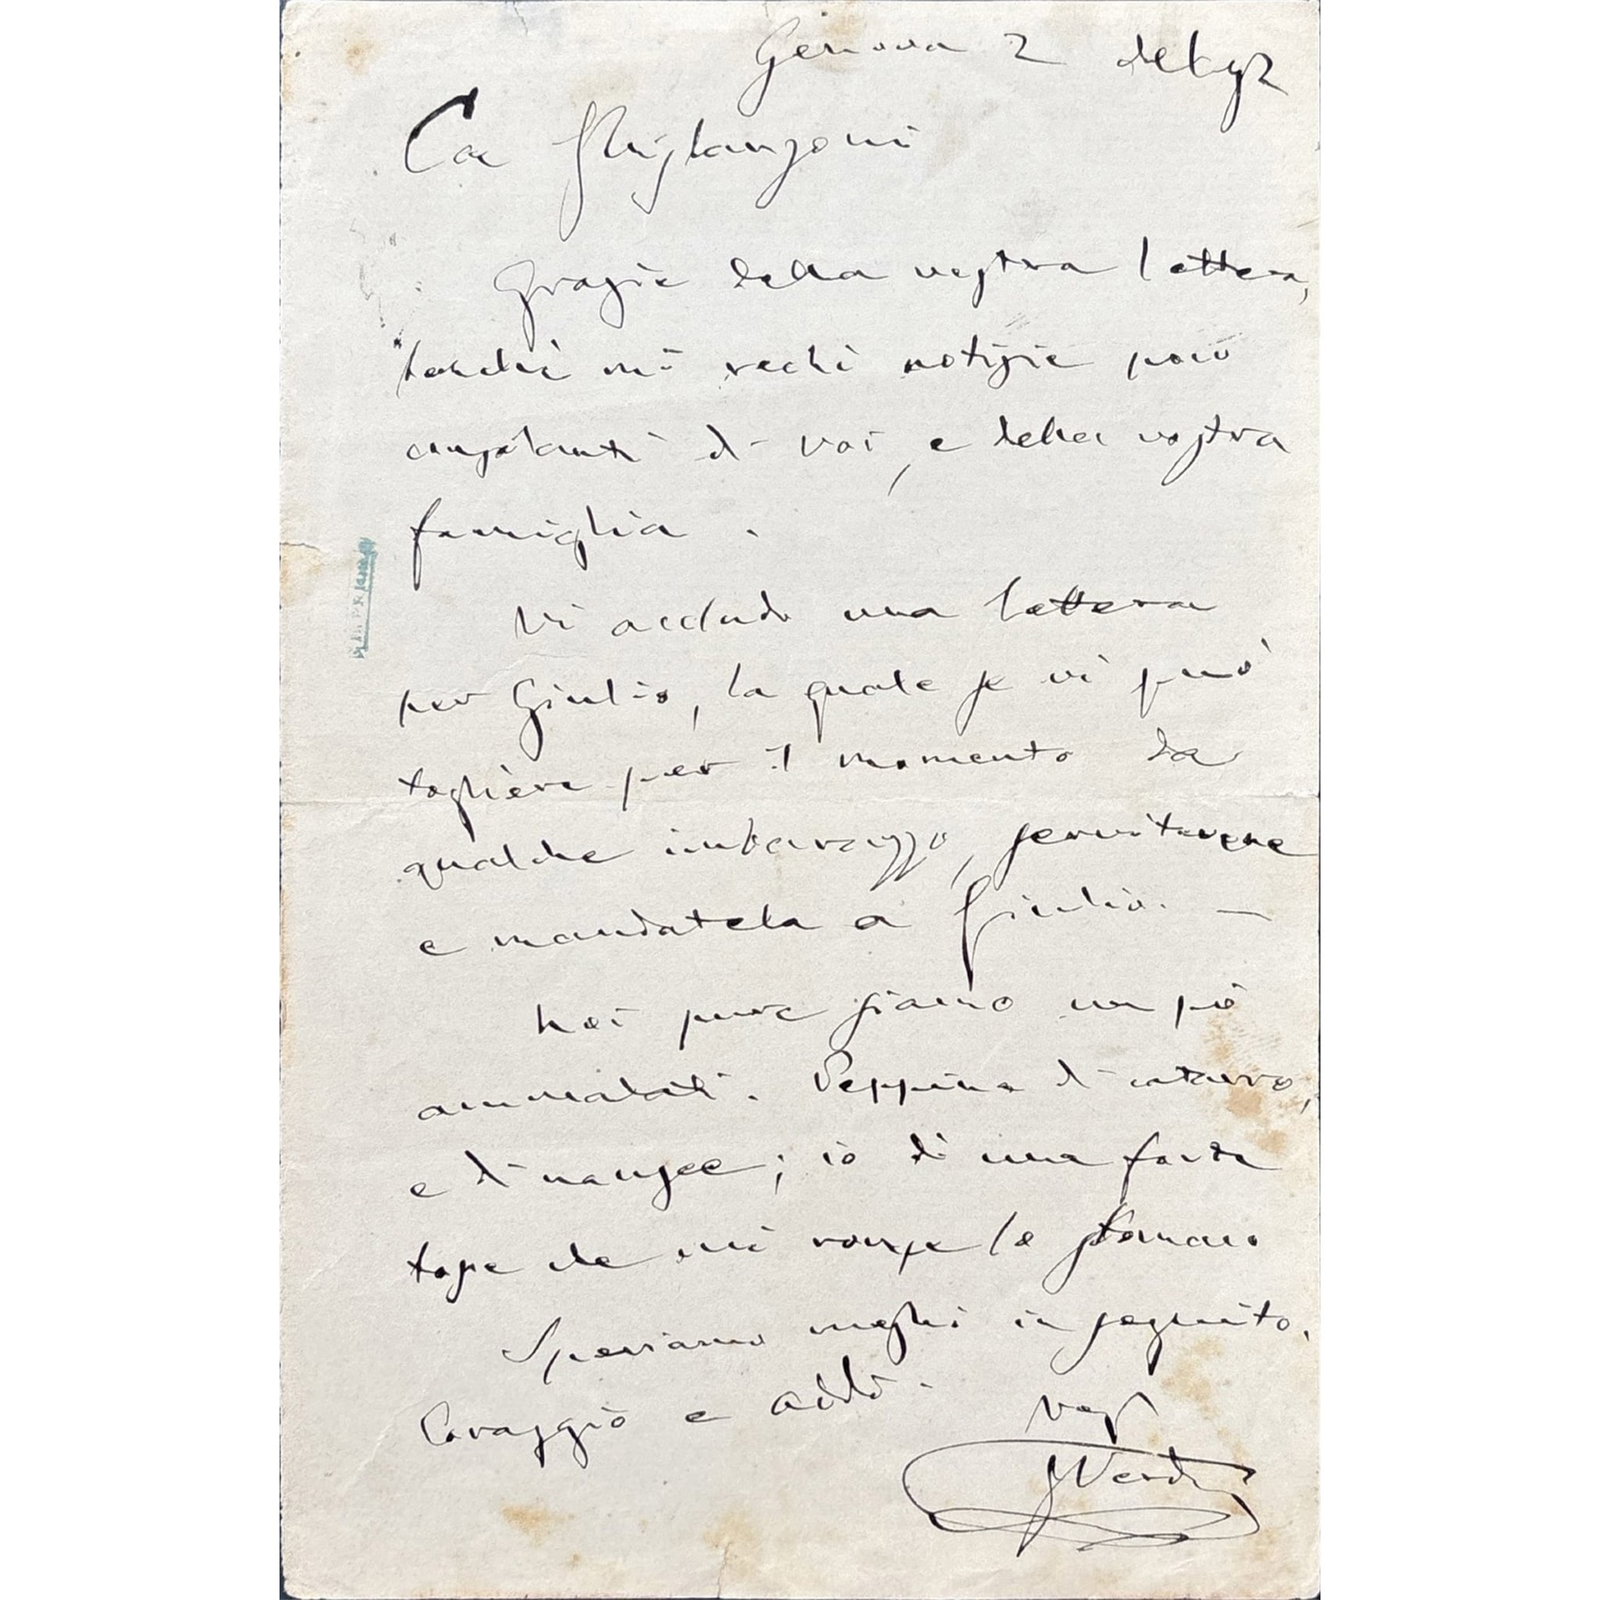 Genova 2
Ca Ghislanzoni
Grazie della vostra lettera,
benchè mi rechi notizie poco
di voi, e della vostra
famiglia.
Vi accludo una lettera
per Giulio, la quale se vi può
togliere per il momento da
qualche imbarazzo, servitevene
e mandatela a Giulio. —
Noi pure siamo un pò
ammalati. Peppina di catarro,
e di nausee; io di una forte
tosse che mi rompe lo stomaco
Speriamo meglio in seguito.
Coraggio e addio.
Vos
GVerdi